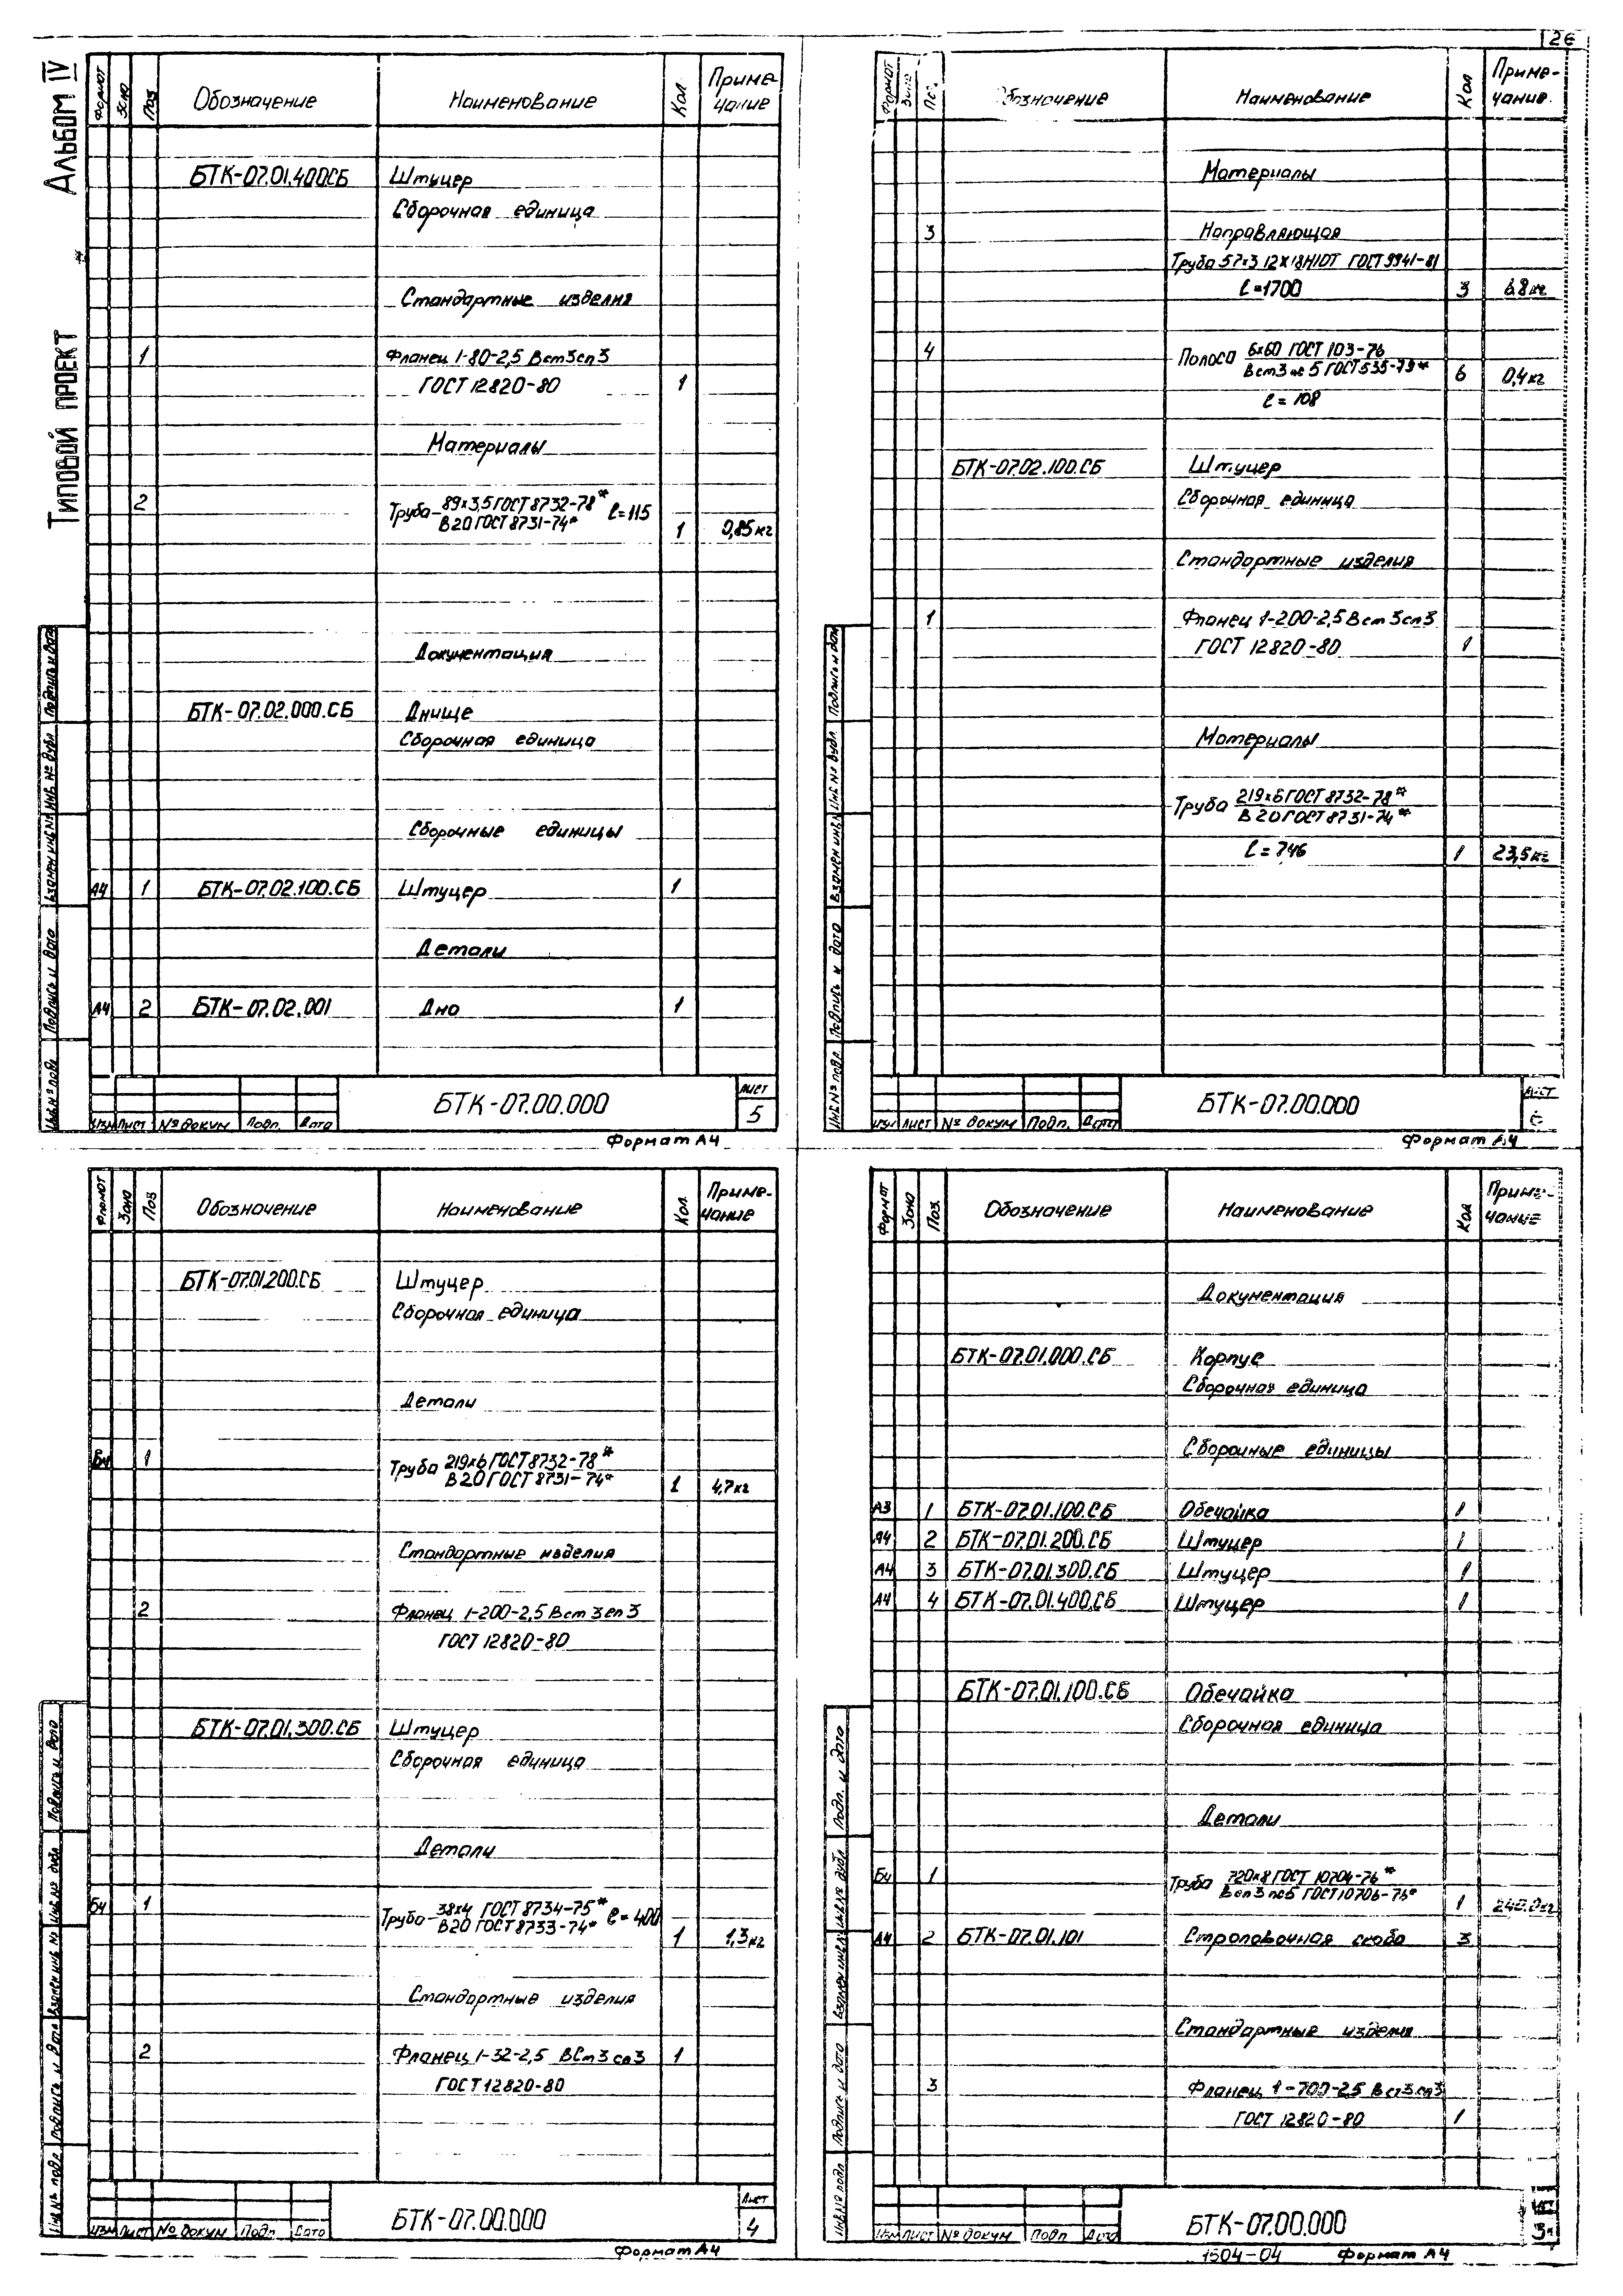 26
Альбом IV
Типовой проект
Формат Зона Поз Обозначение Наименование Кол Приме-
чание
БТК-07.01.400СБ Штуцер
Сборочная единица
Стандартные изделия
1 Фланец 1-80-2,5 Вст3сп3
ГОСТ 12820-80 1
Материалы
2 Труба 89х3,5 ГОСТ 8732-78* ℓ=115
В20 ГОСТ 8731-74* 1 0,85кг
Документация
БТК-07.02.000.СБ Днище
Сборочная единица
Сборочные единицы
А4 1 БТК-07.02.100.СБ Штуцер 1
Детали
А4 2 БТК-07.02.001 Дно 1
Инв.№ подл Подпись и дата Взамен инв.№ Инв № дубл Подпись и дата
Изм Лист № докум Подп. Дата
БТК-07.00.000
Лист
5
Формат А4
Формат Поз. Обозначение Наименование Кол Приме-
чание.
Материалы
3 Направляющая
Труба 57х3 12Х18Н10Т ГОСТ 9941-81
ℓ=1700 3 6.8кг
4 Полоса 6х60 ГОСТ 103-76
Вст3 пс 5 ГОСТ 535-79* 6 0,4кг
ℓ= 108
БТК-07.02.100.СБ Штуцер
Сборочная единица
Стандартные изделия
1 Фланец 1-200-2,5 Вст3сп3
ГОСТ 12820-80 1
Материалы
Труба 219х6 ГОСТ 8732-78*
В 20 ГОСТ 8731-74*
ℓ= 746 1 23,5кг
Инв № подл. Подпись и дата Взамен инв.№ Инв.№ дубл. Подпись и дата
Изм Лист № докум Подп. Дата
БТК-07.00.000
Лист
Формат А4
Формат Зона Поз Обозначение Наименование Кол. Приме-
чание
БТК-07.01.200.СБ Штуцер
Сборочная единица
Детали
Бч 1 Труба 219х6 ГОСТ 8732-78*
В20 ГОСТ 8731-74* 1 4,7кг
Стандартные изделия
2 Фланец 1-200-2,5 Вст3сп3
ГОСТ 12820-80
БТК-07.01.300.СБ Штуцер
Сборочная единица
Детали
Бч 1 Труба 38х4 ГОСТ 8734-75* ℓ=400
В20 ГОСТ 8733-74* 1 1,3кг
Стандартные изделия
2 Фланец 1-32-2,5 ВСт3сп3 1
ГОСТ 12820-80
Инв № подл Подпись и дата Взамен инв № Инв № дубл Подпись и дата
Изм Лист № докум Подп Дата
БТК-07.00.000
Лист
4
Формат А4
Формат Зона Поз. Обозначение Наименование Кол Приме-
чание
Документация
БТК-07.01.000.СБ Корпус
Сборочная единица
Сборочные единицы
А3 1 БТК-07.01.100.СБ Обечайка 1
А4 2 БТК-07.01.200.СБ Штуцер 1
А4 3 БТК-07.01.300.СБ Штуцер 1
А4 4 БТК-07.01.400.СБ Штуцер 1
БТК-07.01.100.СБ Обечайка
Сборочная единица
Детали
Бч 1 Труба 720х8 ГОСТ 10704-76*
Всп3пс5 ГОСТ 10706-76* 1 240.0кг
А4 2 БТК-07.01.101 Строповочная скоба 3
Стандартные изделия
3 Фланец 1-700-2,5 Вст3сп3
ГОСТ 12820-80 1
Инв № подл Подпись и дата Взамен инв.№ Инв.№ дубл Подп. и дата
Изм Лист № докум Подп Дата
БТК-07.00.000
3
1504-04 Формат А4